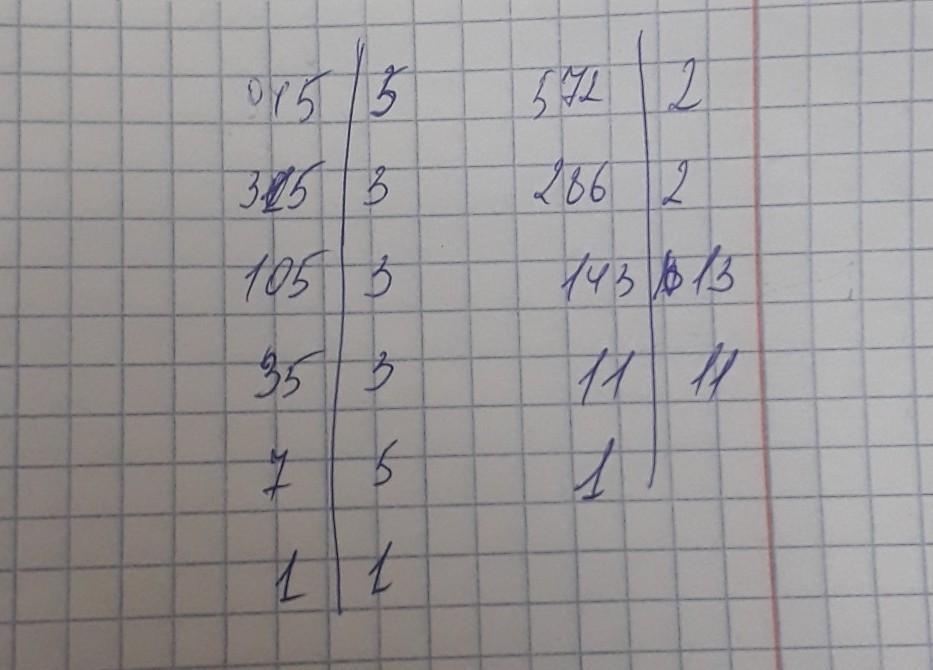 915 | 3 572 | 2
315 | 3 286 | 2
105 | 3 143 | 13
35 | 3 11 | 11
7 | 5 1
1 | 1